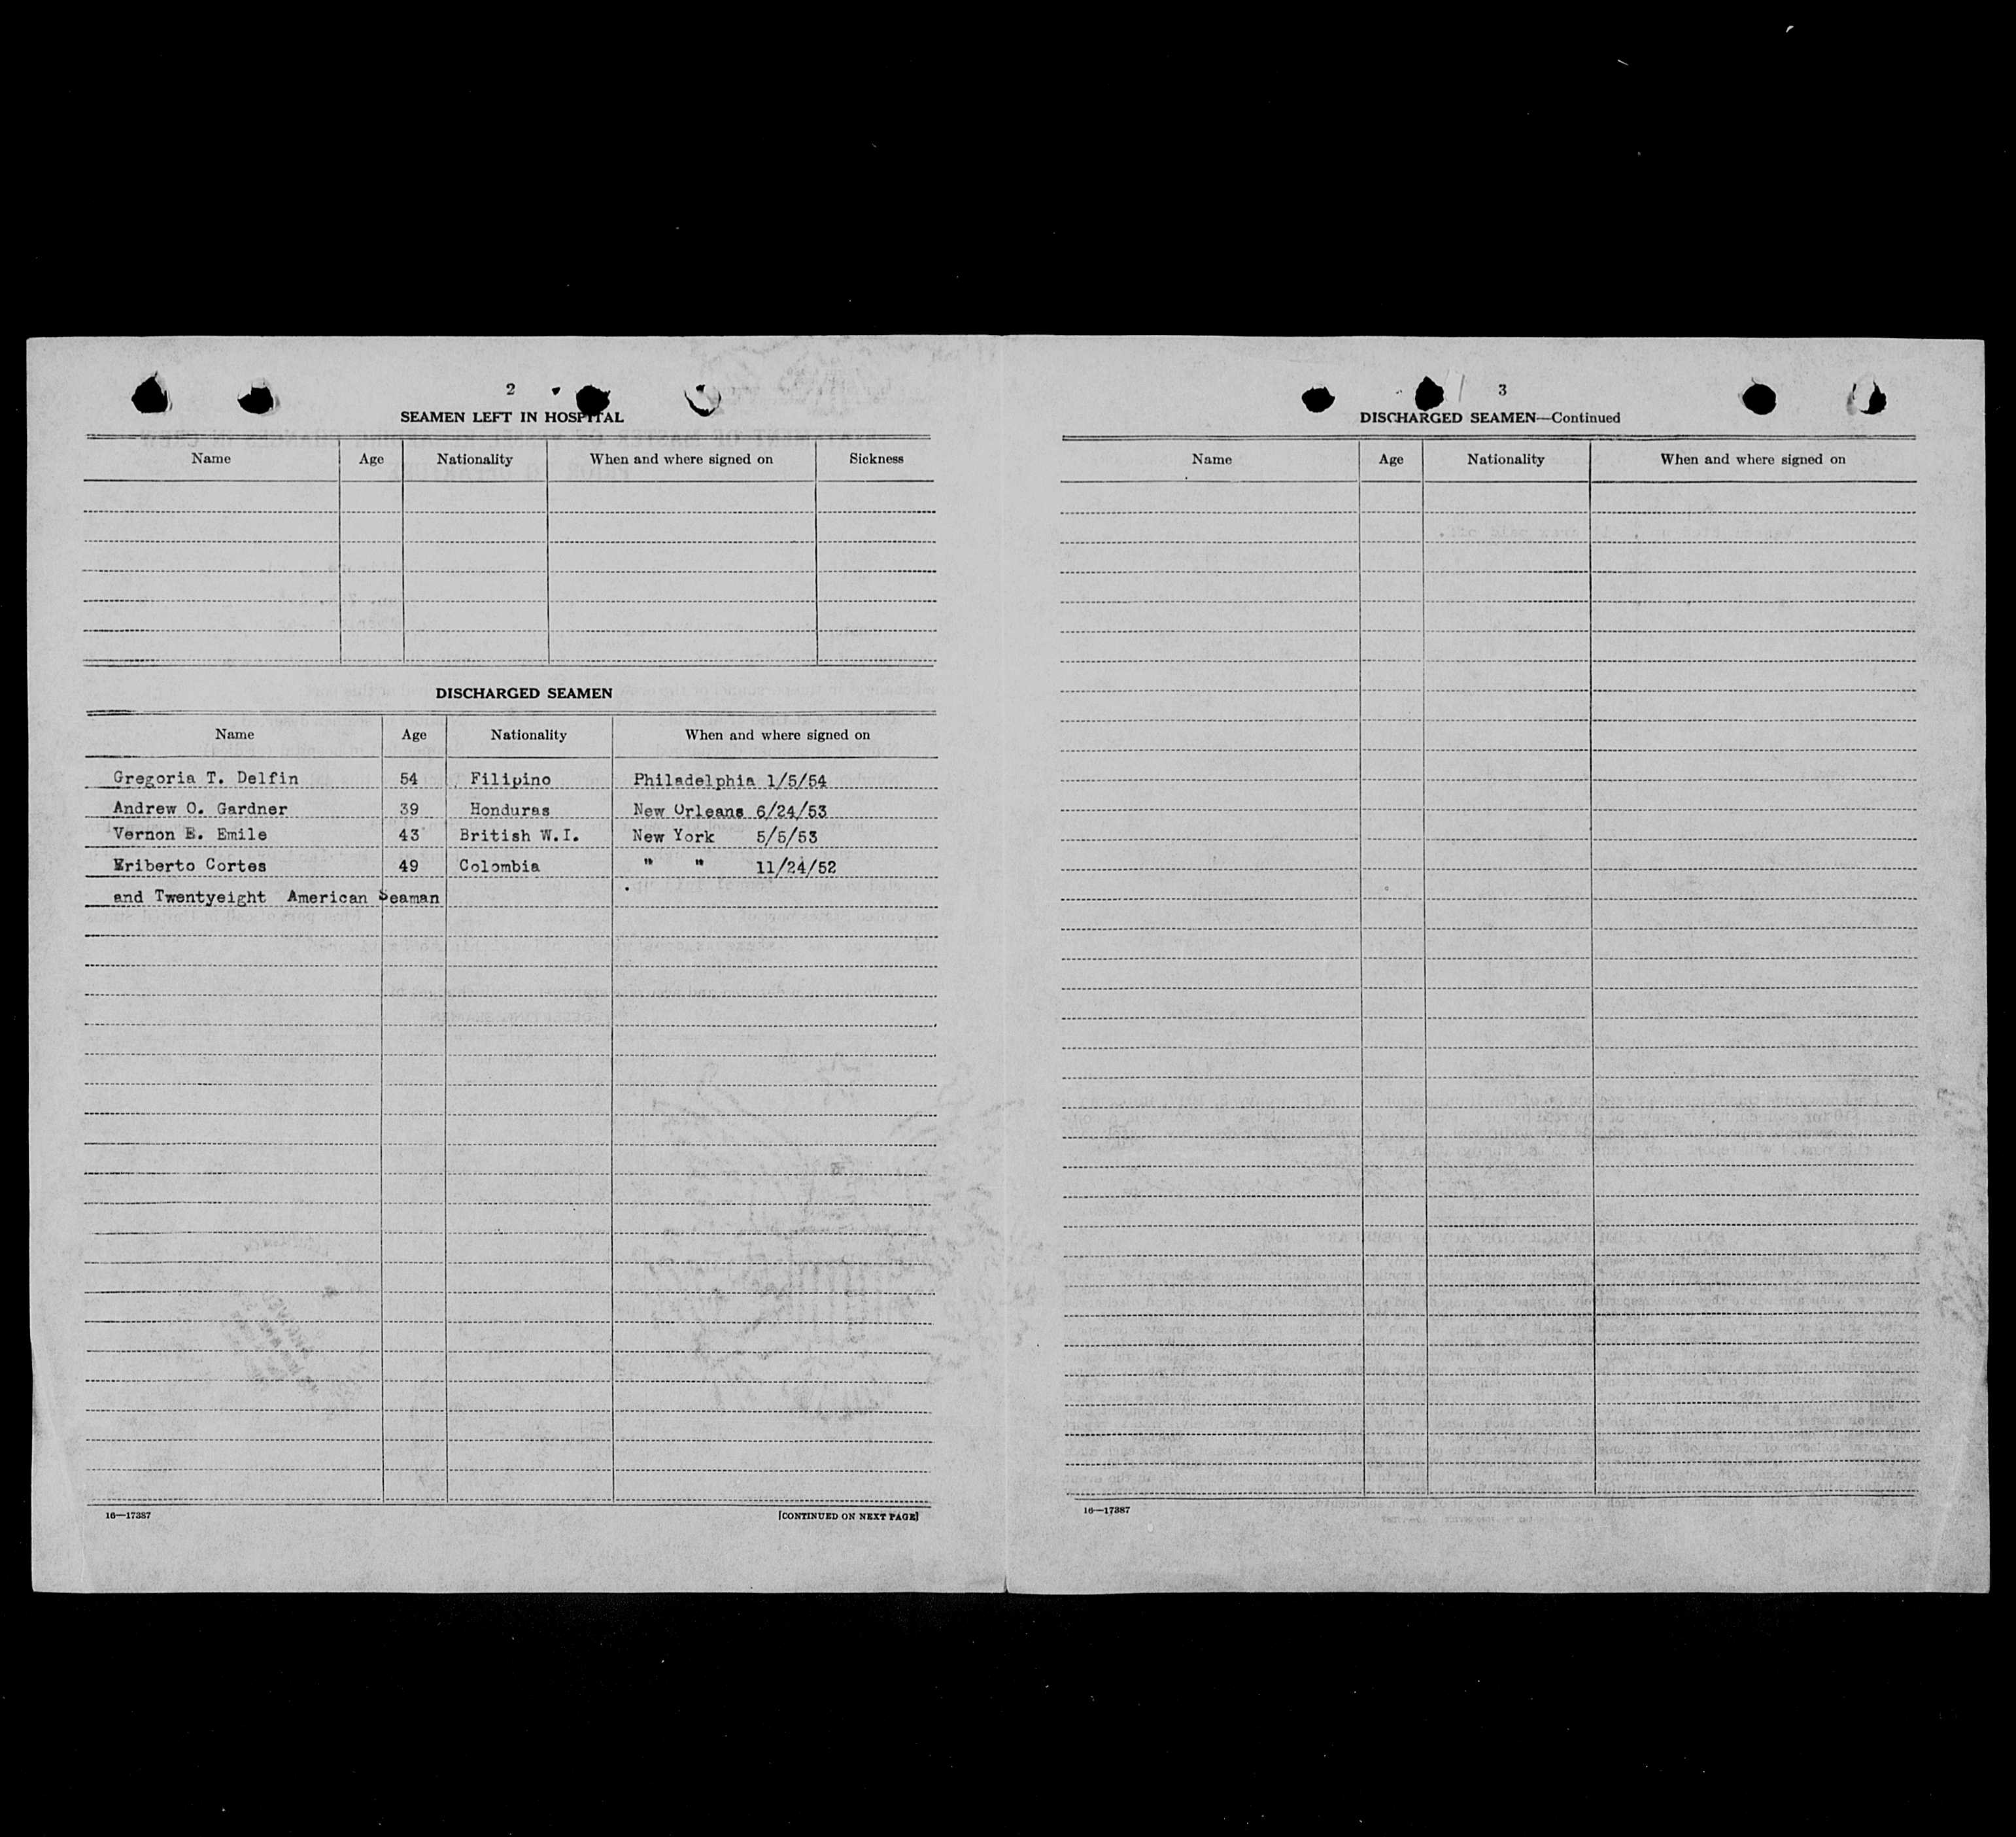 2
SEAMEN LEFT IN HOSPITAL
Name Age Nationality When and where signed on Sickness
DISCHARGED SEAMEN
Name Age Nationality When and where signed on
Gregoria T. Delfin 54 Filipino Philadelphia 1/5/54
Andrew O. Gardner 39 Honduras New Orleans 6/24/53
Vernon E. Emile 43 British W.I. New York 5/5/53
Eriberto Cortes 49 Colombia " " 11/24/52
and Twentyeight American Seaman
16—17387 [CONTINUED ON NEXT PAGE]
3
DISCHARGED SEAMEN—Continued
Name Age Nationality When and where signed on
16—17387